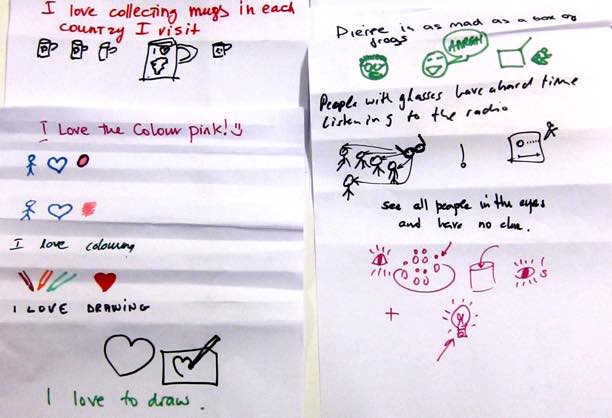 I love collecting mugs in each
country I visit
I ♡
I Love the Colour pink!
I love colouring
I LOVE DRAWING
I love to draw.
Pierre is as mad as a box of
frogs
AARGH
People with glasses have a hard time
listening to the radio
!
see all people in the eyes
and have no clue.
's
+